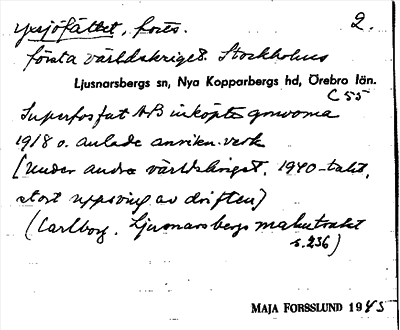 Yxsjöfältet, forts. 2.
första världskriget. Stockholms
Ljusnarsbergs sn, Nya Kopparbergs hd, Örebro län.
C 55
Superfosfat AB inköpte gruvorna
1918 o. anlade anrikn.verk
[Under andra världskriget, 1940-talet,
stort uppsving av driften]
(Carlborg, Ljusnarsbergs malmtrakt
s. 236)
MAJA FORSSLUND 1945